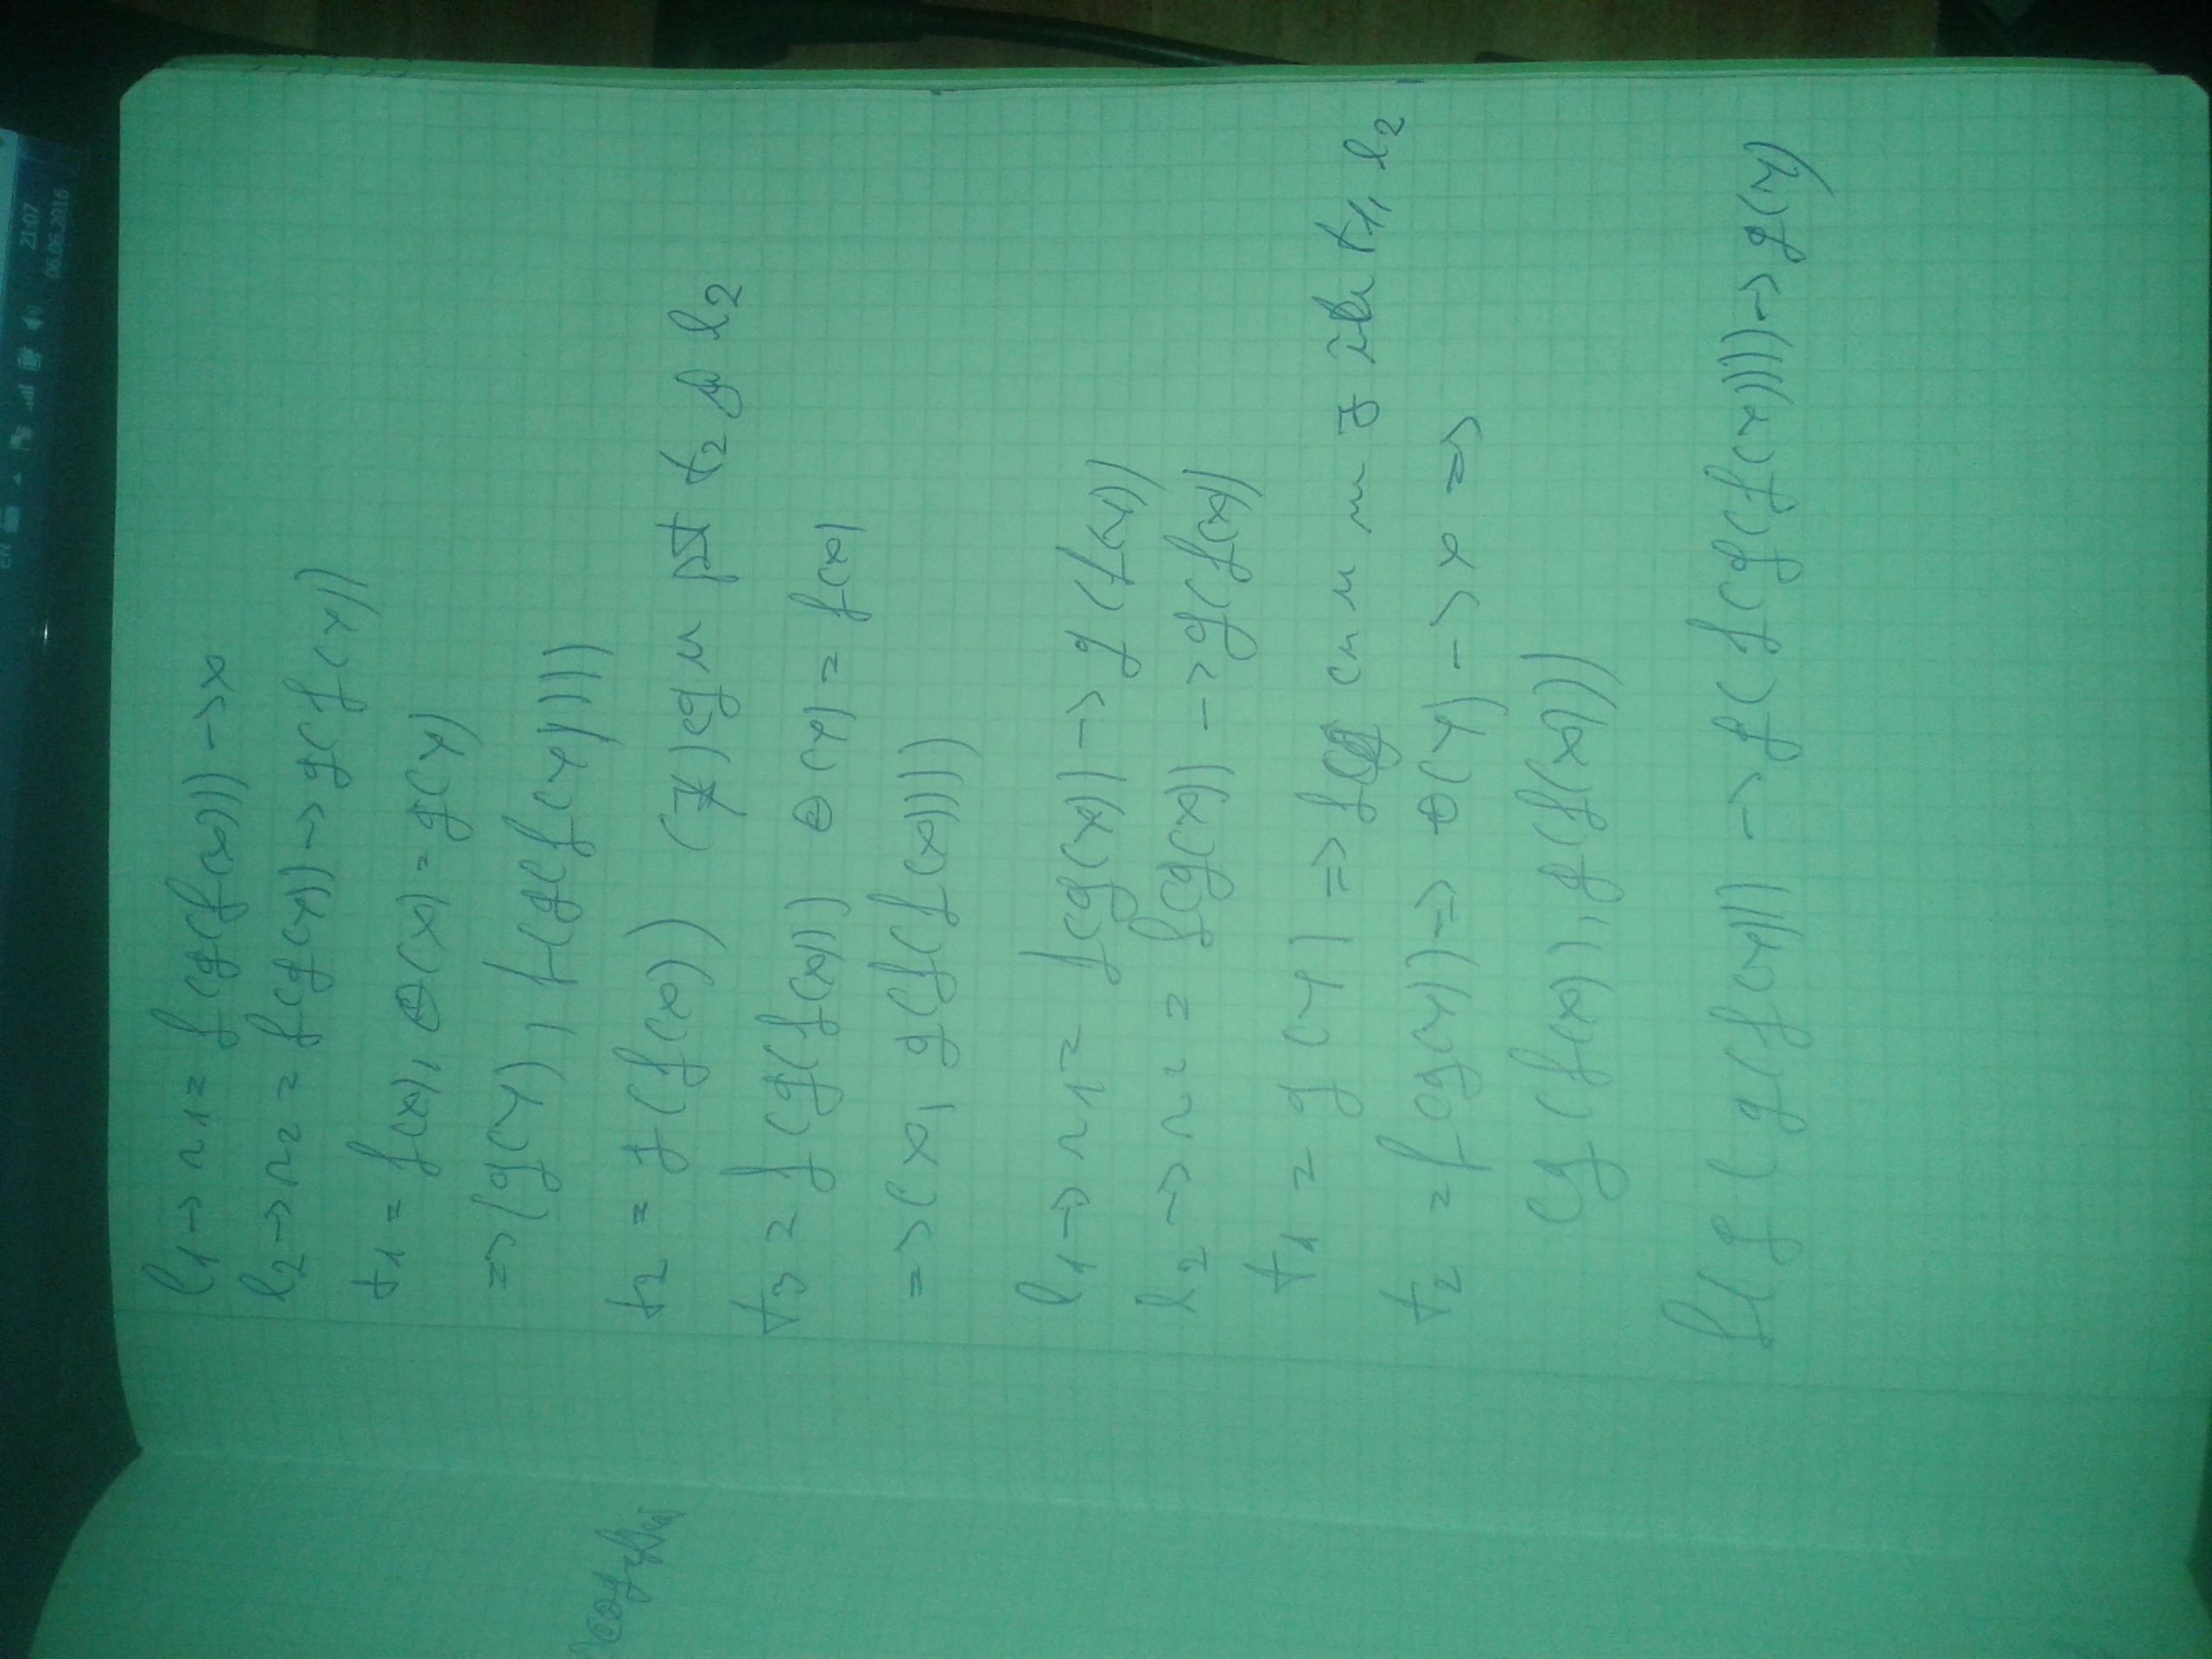 EN 21:07
06.06.2016
l1 -> r1 = f(g(f(x))) -> x
l2 -> r2 = f(g(y)) -> g(f(y))
t1 = f(x), θ(x) = g(y)
=> (g(y), f(g(f(y))))
t2 = g(f(x)) (∄) cgu pt t2 și l2
t3 = f(g(f(x))) θ(y) = f(x)
=> (x, g(f(f(x))))
l1 -> r1 = f(g(y)) -> g(f(y))
l2 -> r2 = f(g(x)) -> g(f(x))
t1 = g(y) => t1, l2
t2 = f(g(y)) => θ(y) -> x =>
(g(f(x)), g(f(x)))
f(g(g(f(y))) -> g(f(g(f(y)))) -> g(y)